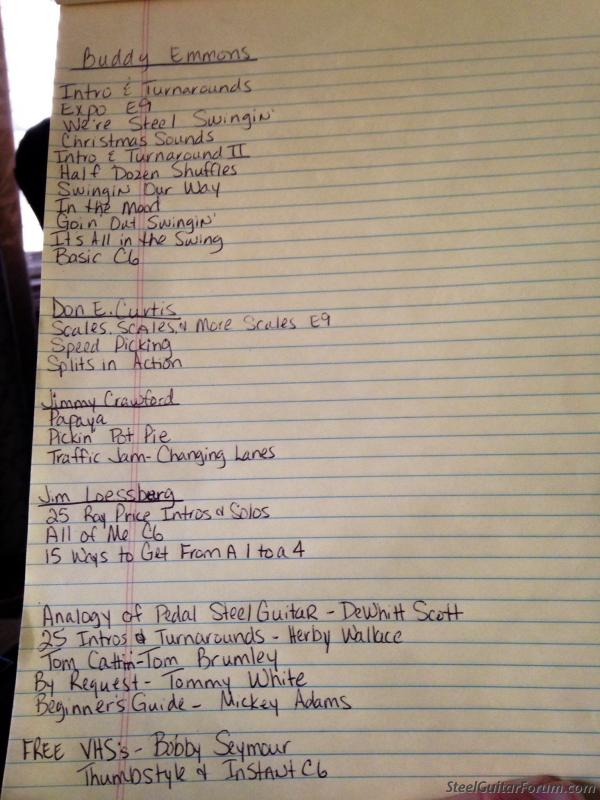 Buddy Emmons
Intro & Turnarounds
Expo E9
We're Steel Swingin'
Christmas Sounds
Intro & Turnaround II
Half Dozen Shuffles
Swingin Our Way
In the Mood
Goin Out Swingin'
It's All in the Swing
Basic C6
Don E. Curtis
Scales, Scales, & More Scales E9
Speed Picking
Splits in Action
Jimmy Crawford
Papaya
Pickin' Pot Pie
Traffic Jam- Changing Lanes
Jim Loessberg
25 Ray Price Intros & Solos
All of Me C6
15 Ways to Get From A 1 to a 4
Analogy of Pedal Steel Guitar - DeWhitt Scott
25 Intros & Turnarounds - Herby Wallace
Tom Cattin-Tom Brumley
By Request - Tommy White
Beginner's Guide - Mickey Adams
FREE VHS's - Bobby Seymour
Thumbstyle & Instant C6
SteelGuitarForum.com